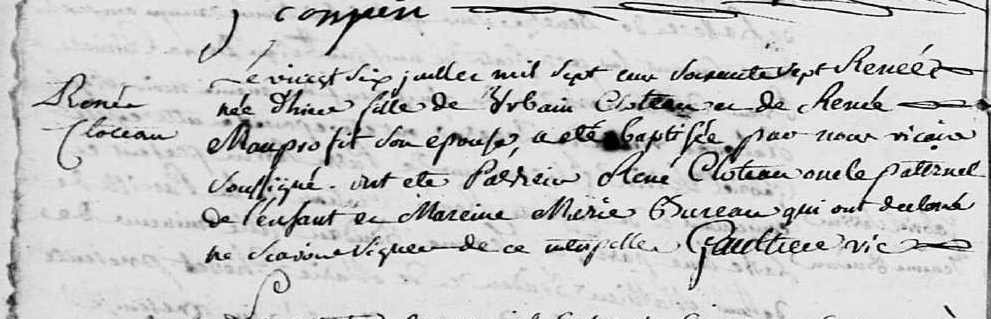 Le vingt six juillet mil sept cent soixante sept Renée
Renée
Cloteau
née d'hier fille de Urbain Cloteau et de Renée
Mauprofit son épouse, a eté baptisée par nous vicaire
soussigné. ont ete Parrein René Cloteau oncle paternel
de l'enfant et Mareine Marie Bureau qui ont declaré
ne scavoir signer de ce interpellés Gaultier vic